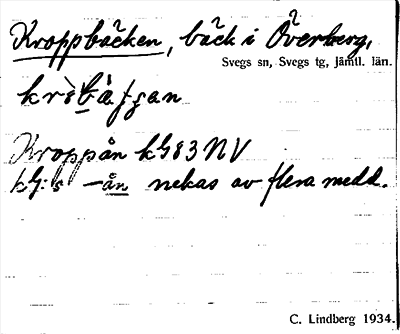 Kroppbäcken, bäck i Överberg,
Svegs sn, Svegs tg, Jämtl. län.
Kroppån kG83NV
kG:s -ån nekas av flera medd.
C. Lindberg 1934.